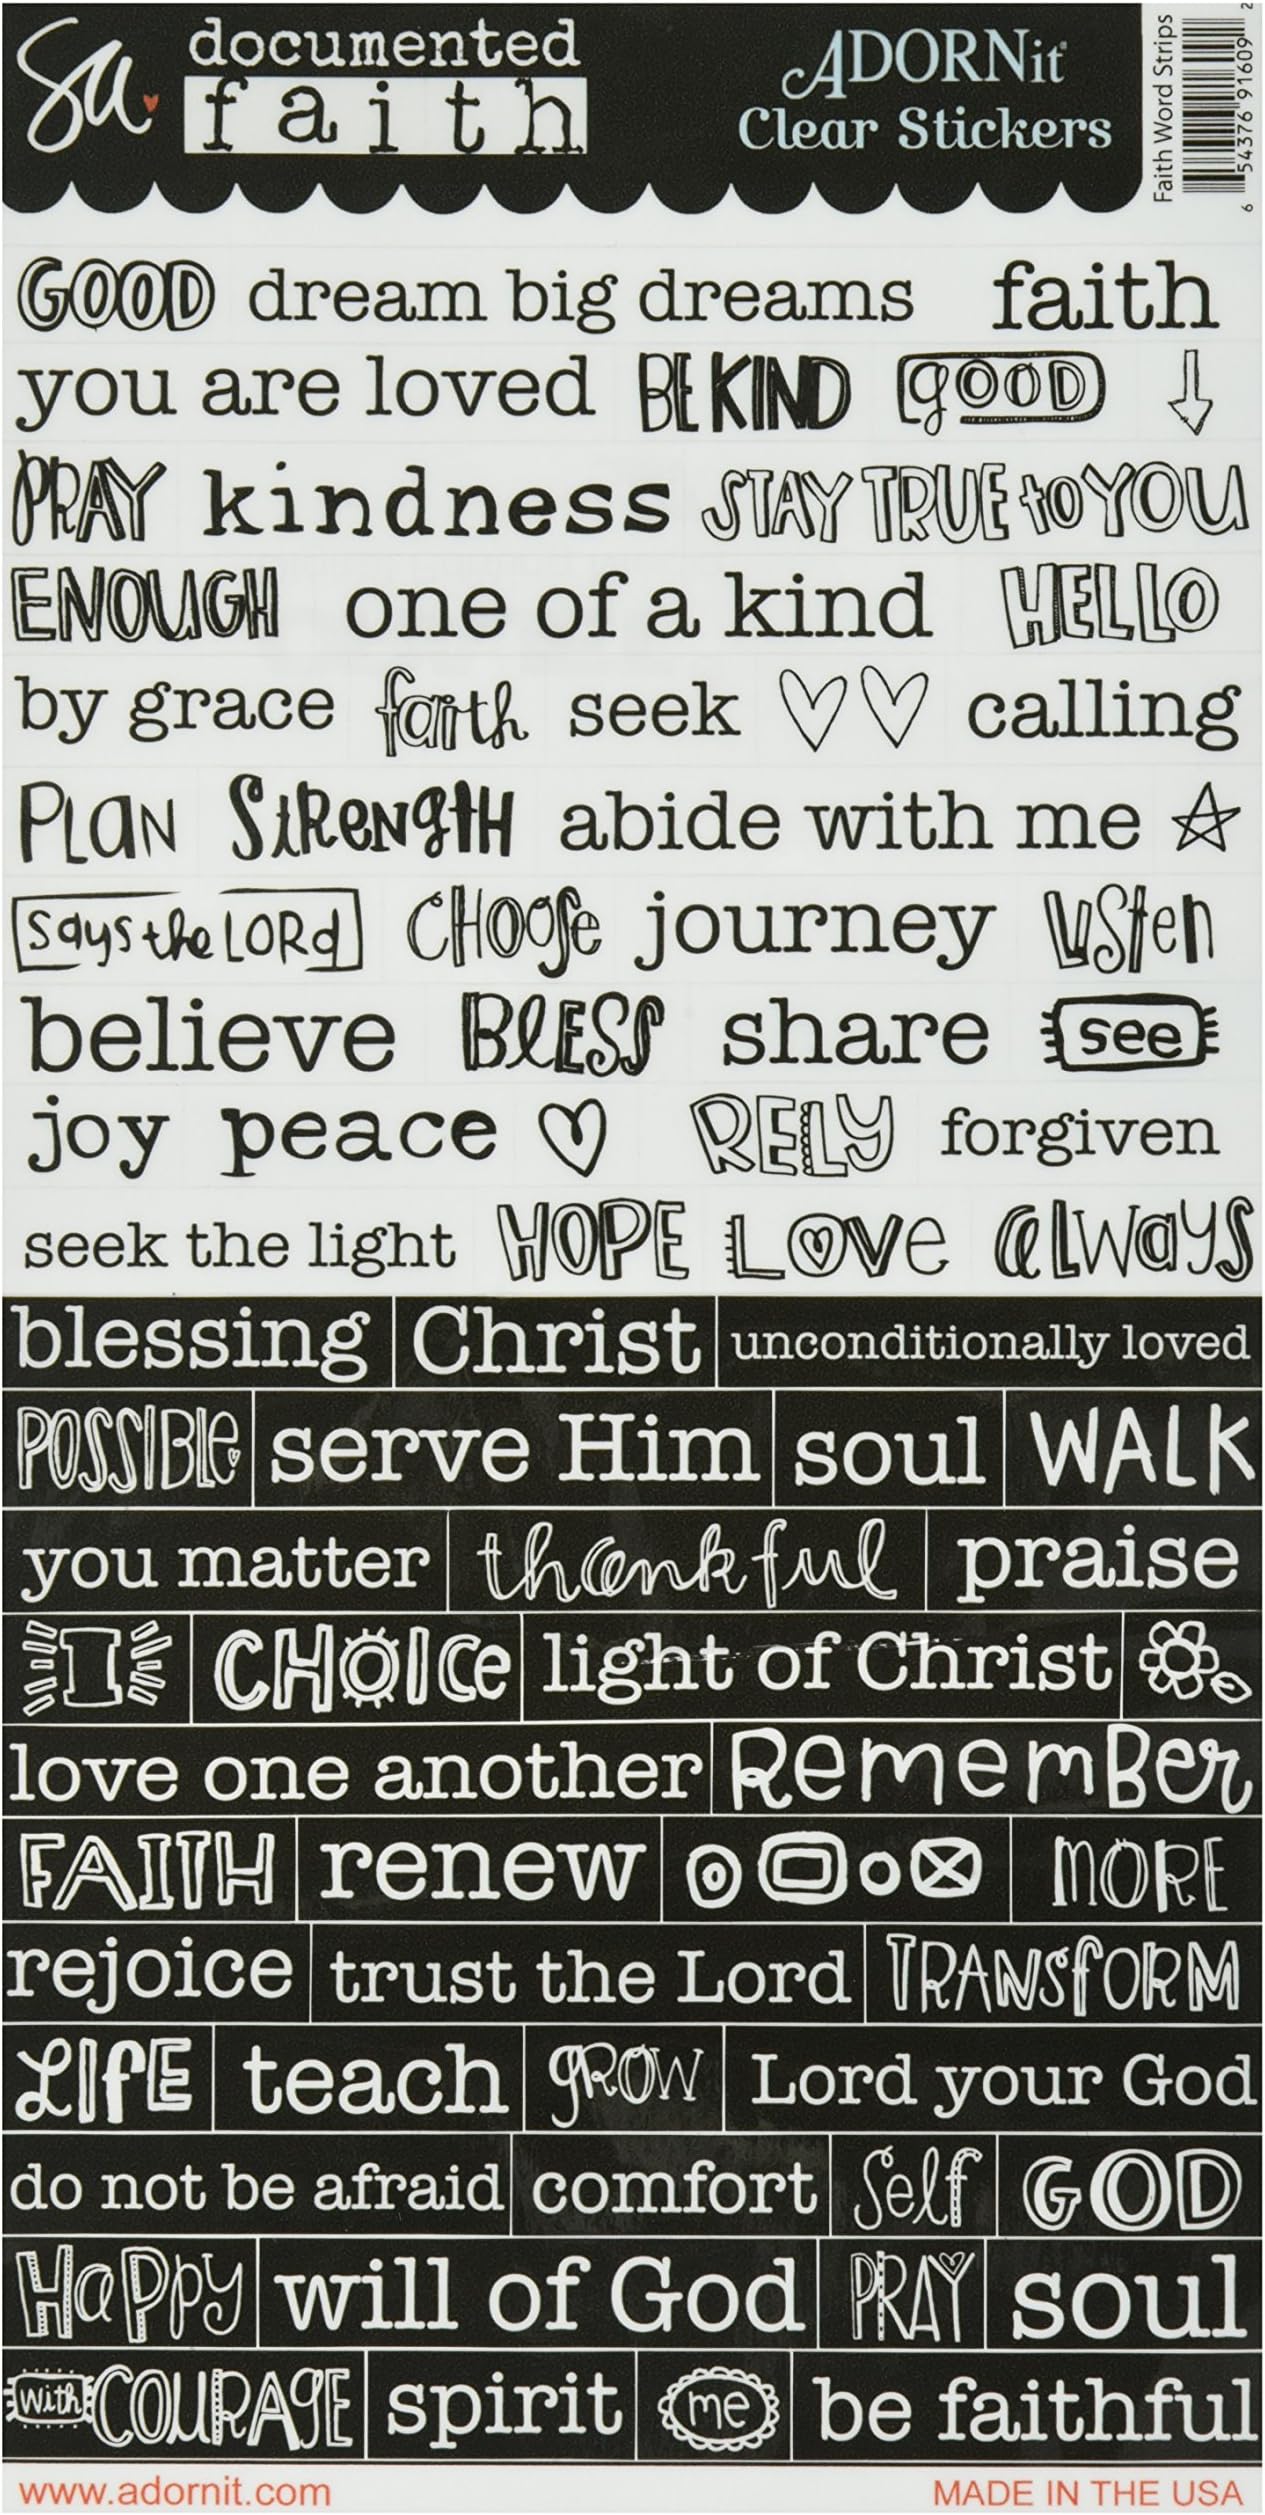 Sa documented faith ADORNit Clear Stickers
Faith Word Strips
6 54376 91609 2
GOOD dream big dreams faith
you are loved BE KIND gOOD
PRAY kindness STAY TRUE to YOU
ENOUGH one of a kind HELLO
by grace faith seek calling
PLaN StReNgtH abide with me
says the LORd CHOOse journey LiSten
believe BlESS share see
joy peace RELY forgiven
seek the light HOPE LOVe aLWayS
blessing Christ unconditionally loved
POSSIBLe serve Him soul WALK
you matter thankful praise
I CHOICe light of Christ
love one another RememBer
FAITH renew MORE
rejoice trust the Lord TRANSfORM
LIfE teach gROW Lord your God
do not be afraid comfort Self GOD
HaPPy will of God PRAY soul
with COURAgE spirit me be faithful
www.adornit.com MADE IN THE USA